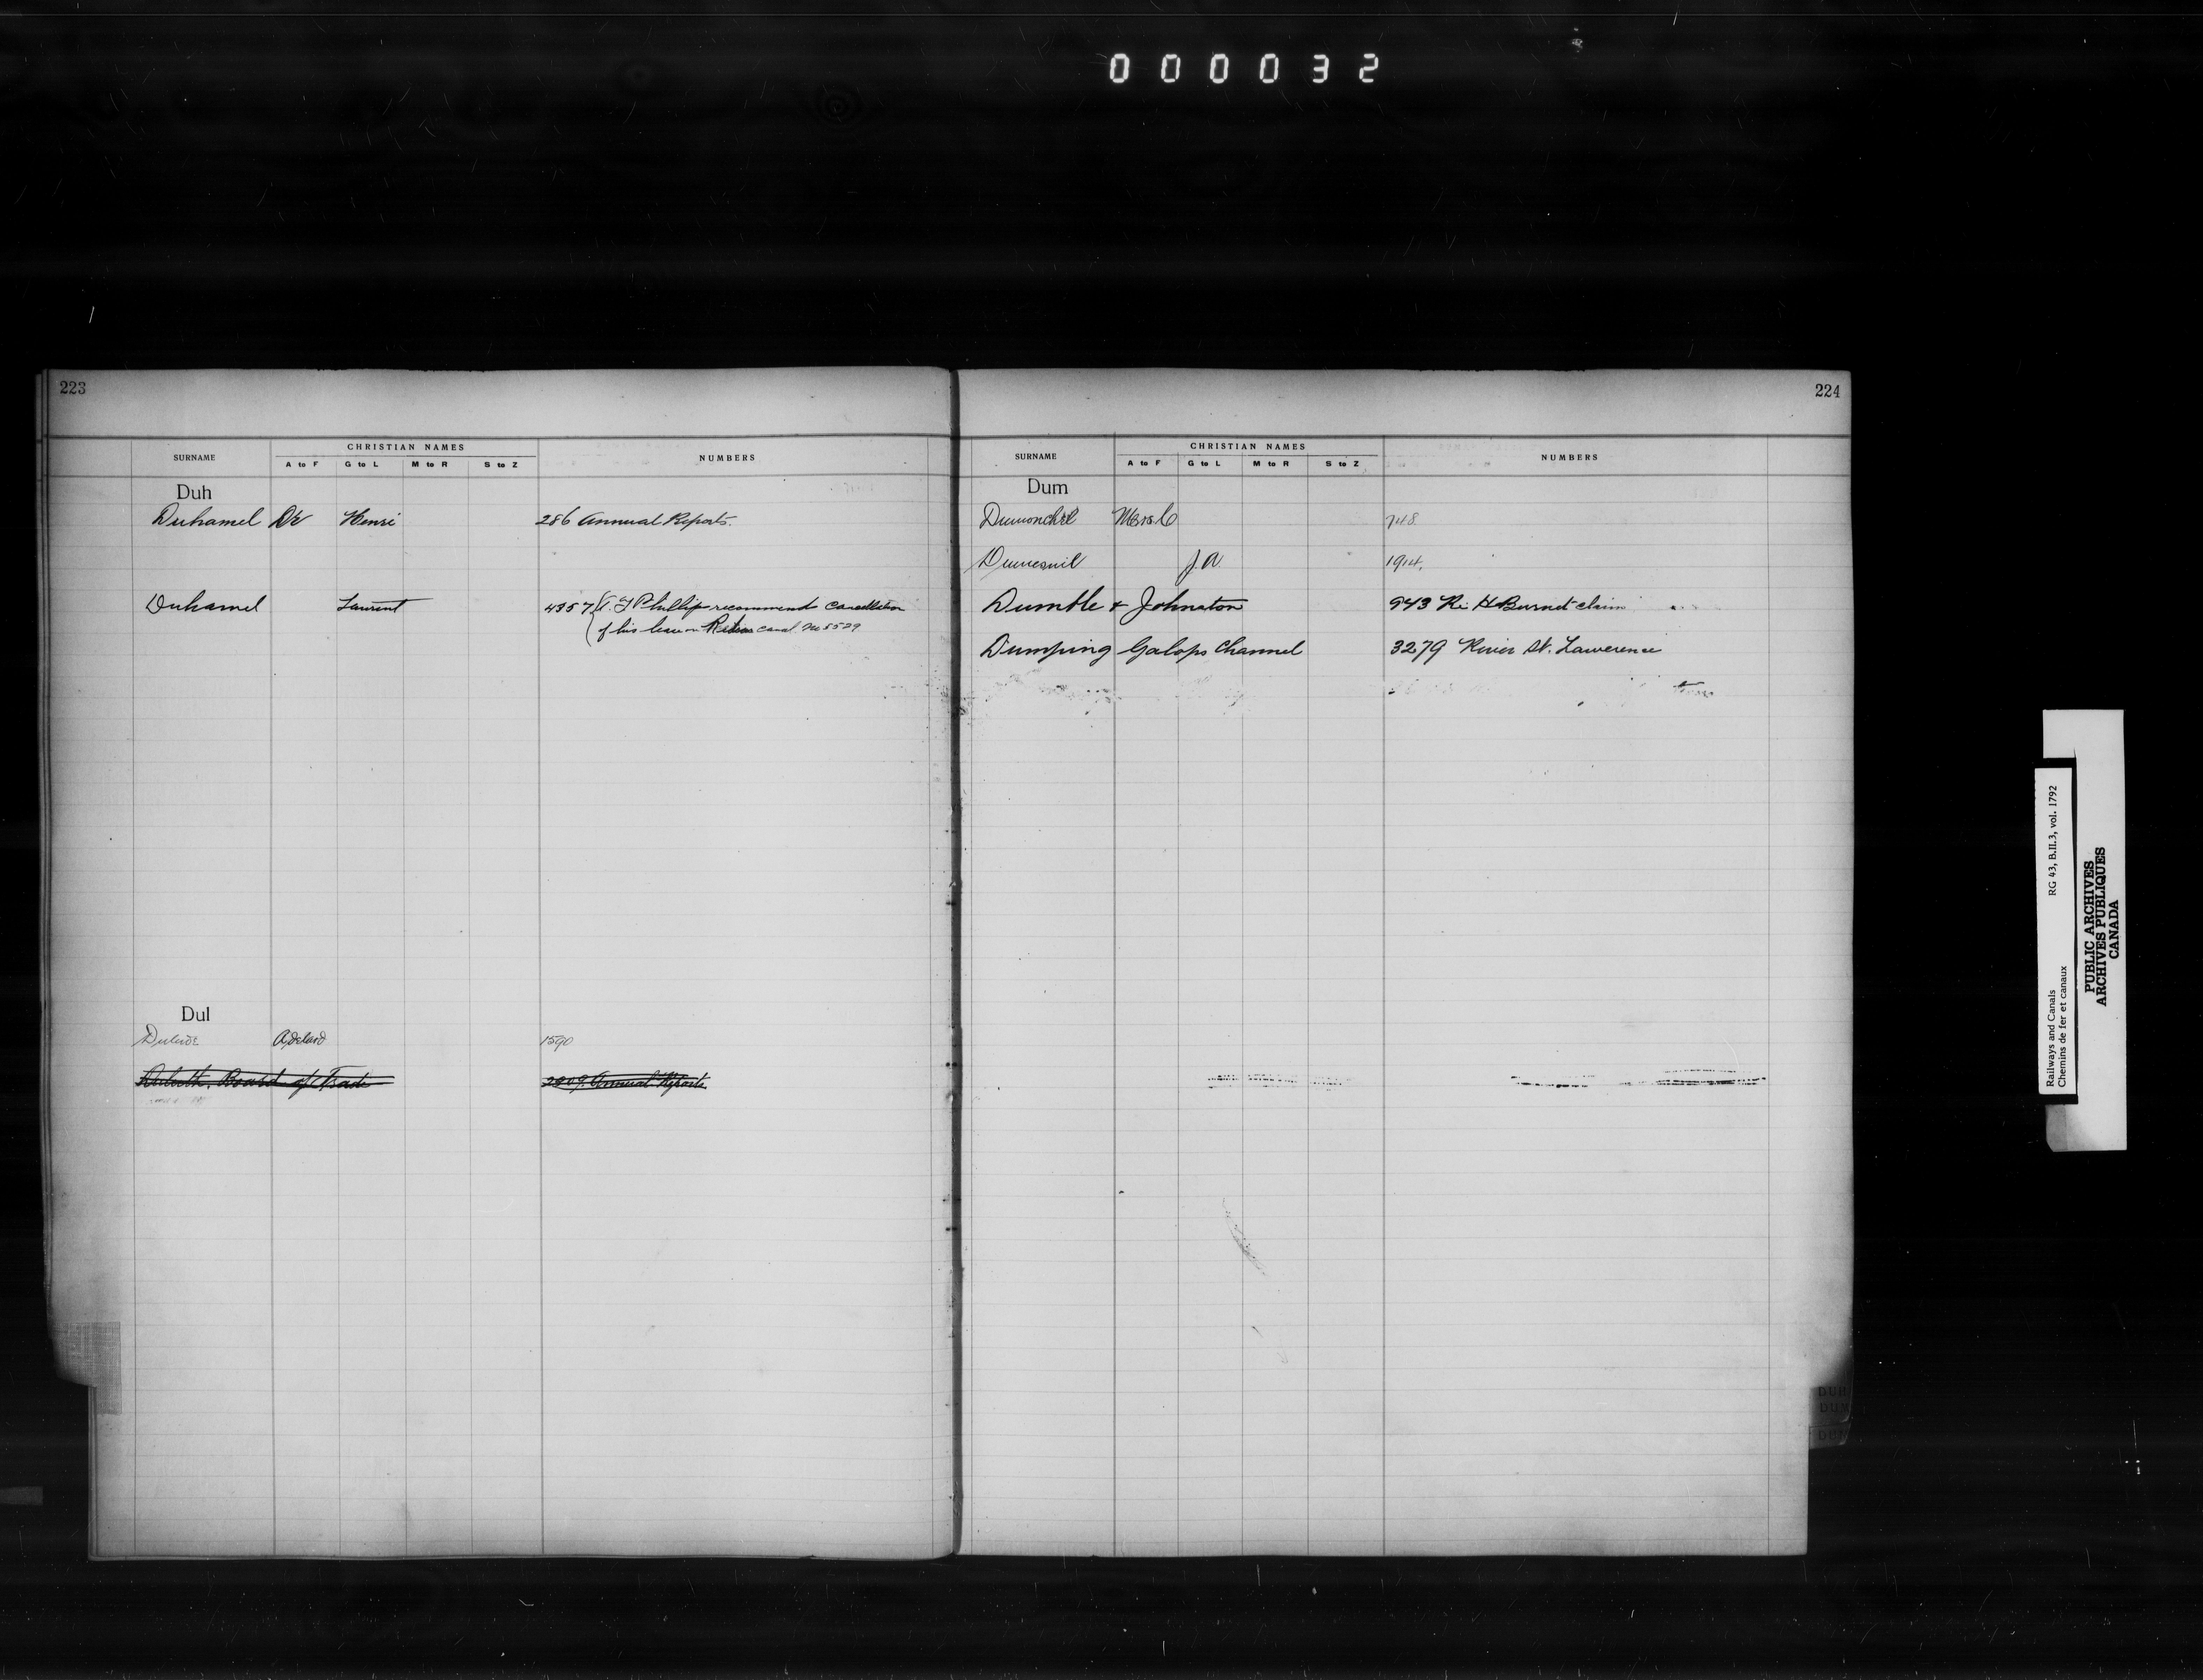 000032
223
SURNAME CHRISTIAN NAMES NUMBERS
A to F G to L M to R S to Z
Duh
Duhamel Dr Henri 286 Annual Reports.
Duhamel Laurent 4357 Phillip recommend cancellation
of his lease on canal No 8529
Dul
Adelard 1590
Duluth, Board of Trade 2909 Annual Reports
224
SURNAME CHRISTIAN NAMES NUMBERS
A to F G to L M to R S to Z
Dum
Dumouchel Mrs. C 748
Dumesnil J. A. 1914.
Dumble & Johnston 943 Re H Burnet claim
Dumping Galops Channel 3279 River St. Lawerence
DUH
DUM
Railways and Canals RG 43, B.II.3, vol. 1792
Chemins de fer et canaux
PUBLIC ARCHIVES
ARCHIVES PUBLIQUES
CANADA